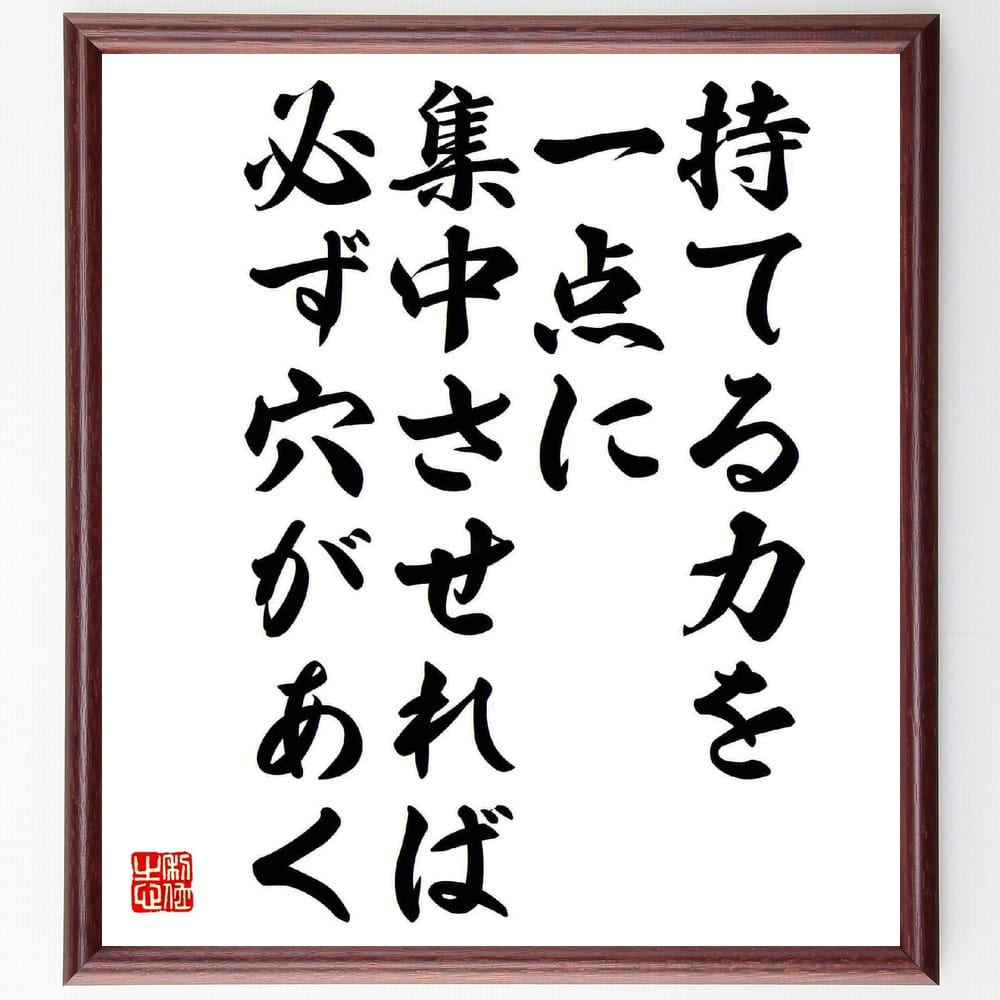 持てる力を
一点に
集中させれば
必ず穴があく